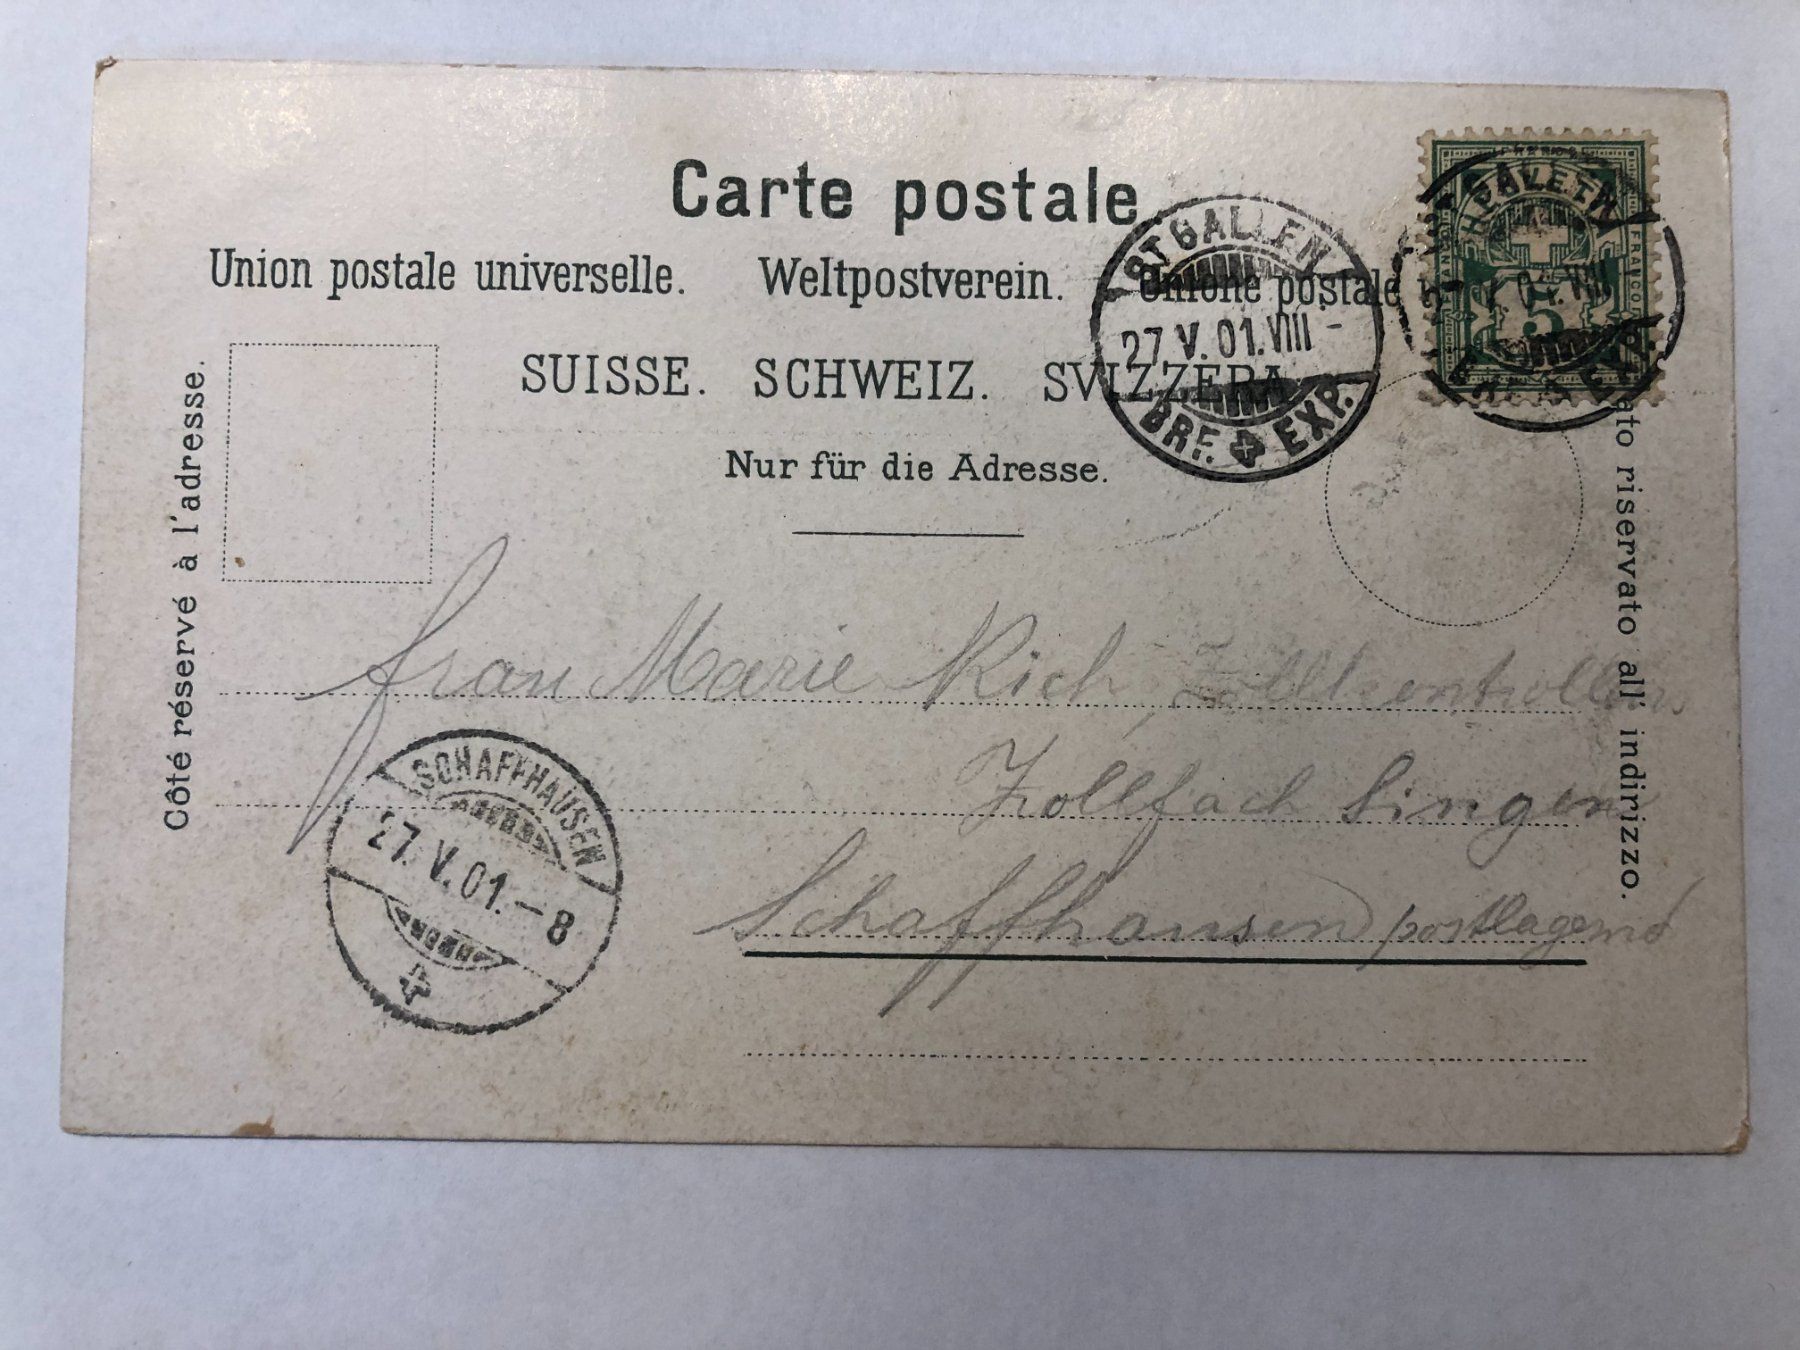 Carte postale.
Union postale universelle. Weltpostverein. Unione postale
SUISSE. SCHWEIZ. SVIZZERA
Nur für die Adresse.
Côté réservé à l'adresse.
ato riservato all' indirizzo.
ST GALLEN
27.V.01.VIII-
BRF. EXP.
FRANCO
5
01.VIII
EXP.
Frau Marie Rich, Zollkontrolleurs
Zollfach Singen
Schaffhausen postlagernd
SCHAFFHAUSEN
27.V.01.-8